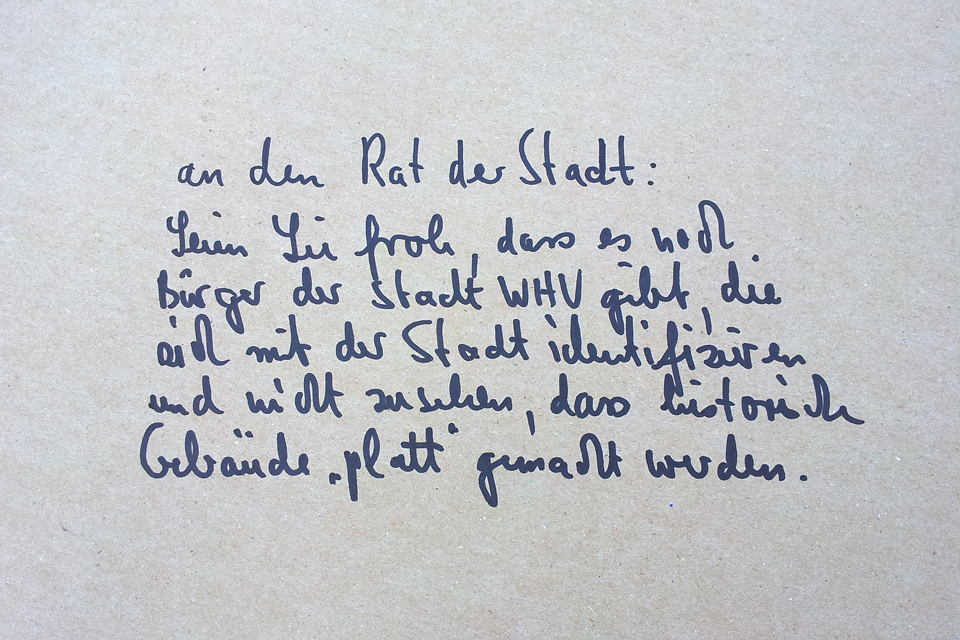 an den Rat der Stadt:
Seien Sie froh, dass es noch
Bürger der Stadt WHV gibt, die
sich mit der Stadt identifizieren
und nicht zusehen, dass historische
Gebäude „platt“ gemacht werden.